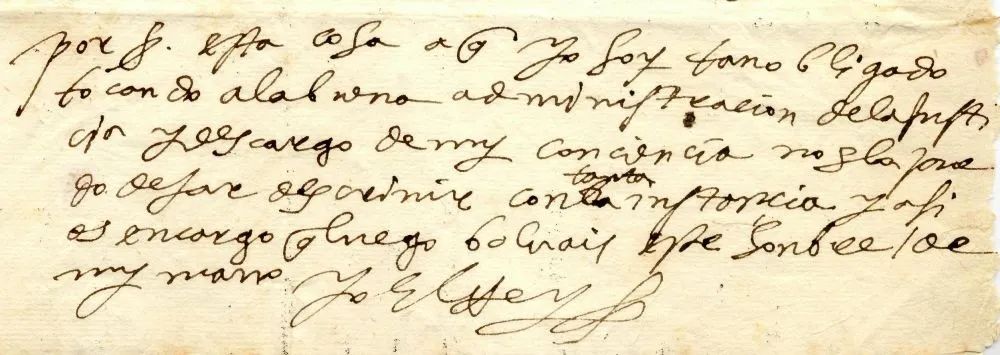 por ser esta cosa a q yo soy tan obligado
tocando a la buena administracion de la justi
cia y descargo de my conciencia no os la pue
do dejar de screvir con tanta instancia y asi
os encargo q luego bolvais este honbre / de
my mano Yo El Rey